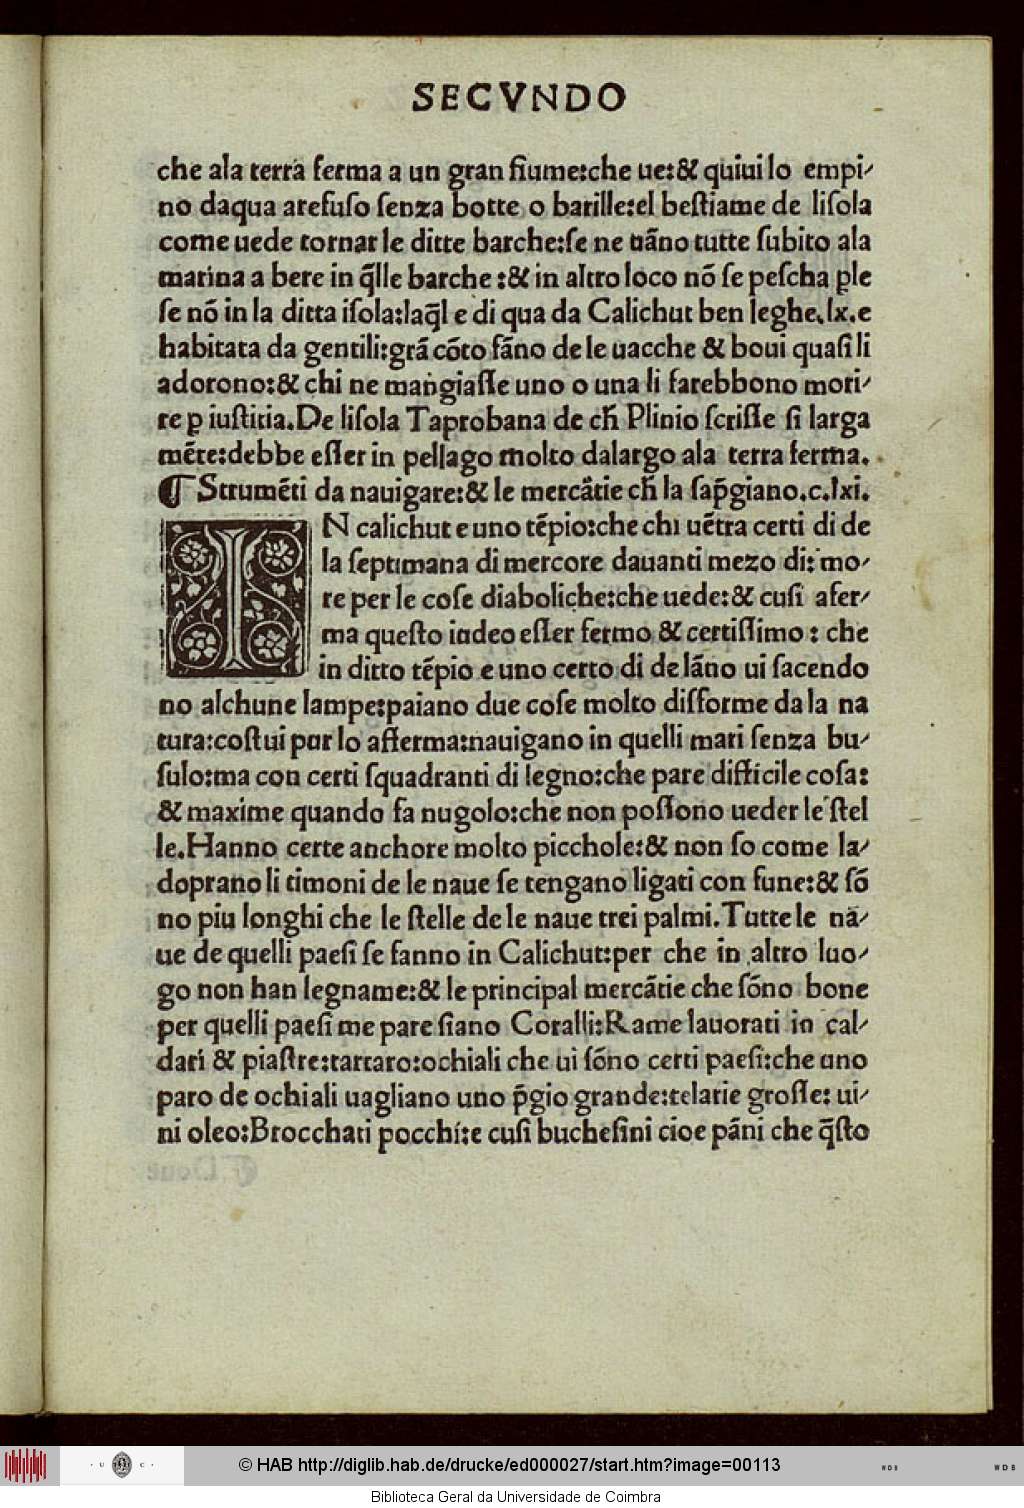 SECVNDO
che ala terra ferma a un gran fiume:che ue:& quiui lo empi-
no daqua arefuso senza botte o barille:el bestiame de lisola
come uede tornar le ditte barche:se ne uãno tutte subito ala
marina a bere in q̃lle barche :& in altro loco nõ se pescha ꝑle
se nõ in la ditta isola:laq̃l e di qua da Calichut ben leghe.lx.e
habitata da gentili:grã cõto fãno de le uacche & boui quasi li
adorono:& chi ne mangiasse uno o una li farebbono mori-
re ꝑ iustitia.De lisola Taprobana de ch̃ Plinio scrisse si larga
mẽte:debbe esser in pellago molto dalargo ala terra ferma.
¶ Strumẽti da nauigare:& le mercãtie ch̃ la sap̃giano.c.lxi.
IN calichut e uno tẽpio:che chi uẽtra certi di de
la septimana di mercore dauanti mezo di: mo-
re per le cose diaboliche:che uede:& cusi afer-
ma questo iudeo esser fermo & certissimo : che
in ditto tẽpio e uno certo di de lãno ui sacendo
no alchune lampe:paiano due cose molto disforme da la na
tura:costui pur lo afferma:nauigano in quelli mari senza bu-
sulo:ma con certi squadranti di legno:che pare difficile cosa:
& maxime quando fa nugolo:che non possono ueder le stel
le.Hanno certe anchore molto picchole:& non so come la-
doprano li timoni de le naue se tengano ligati con fune:& sõ
no piu longhi che le stelle de le naue trei palmi.Tutte le na-
ue de quelli paesi se fanno in Calichut:per che in altro luo-
go non han legname:& le principal mercãtie che sõno bone
per quelli paesi me pare siano Coralli:Rame lauorati in cal-
dari & piastre:tartaro:ochiali che ui sõno certi paesi:che uno
paro de ochiali uagliano uno p̃gio grande:telarie grosse: ui-
ni oleo:Brocchati pocchi:e cusi buchesini cioe pãni che q̃sto
© HAB http://diglib.hab.de/drucke/ed000027/start.htm?image=00113
Biblioteca Geral da Universidade de Coimbra